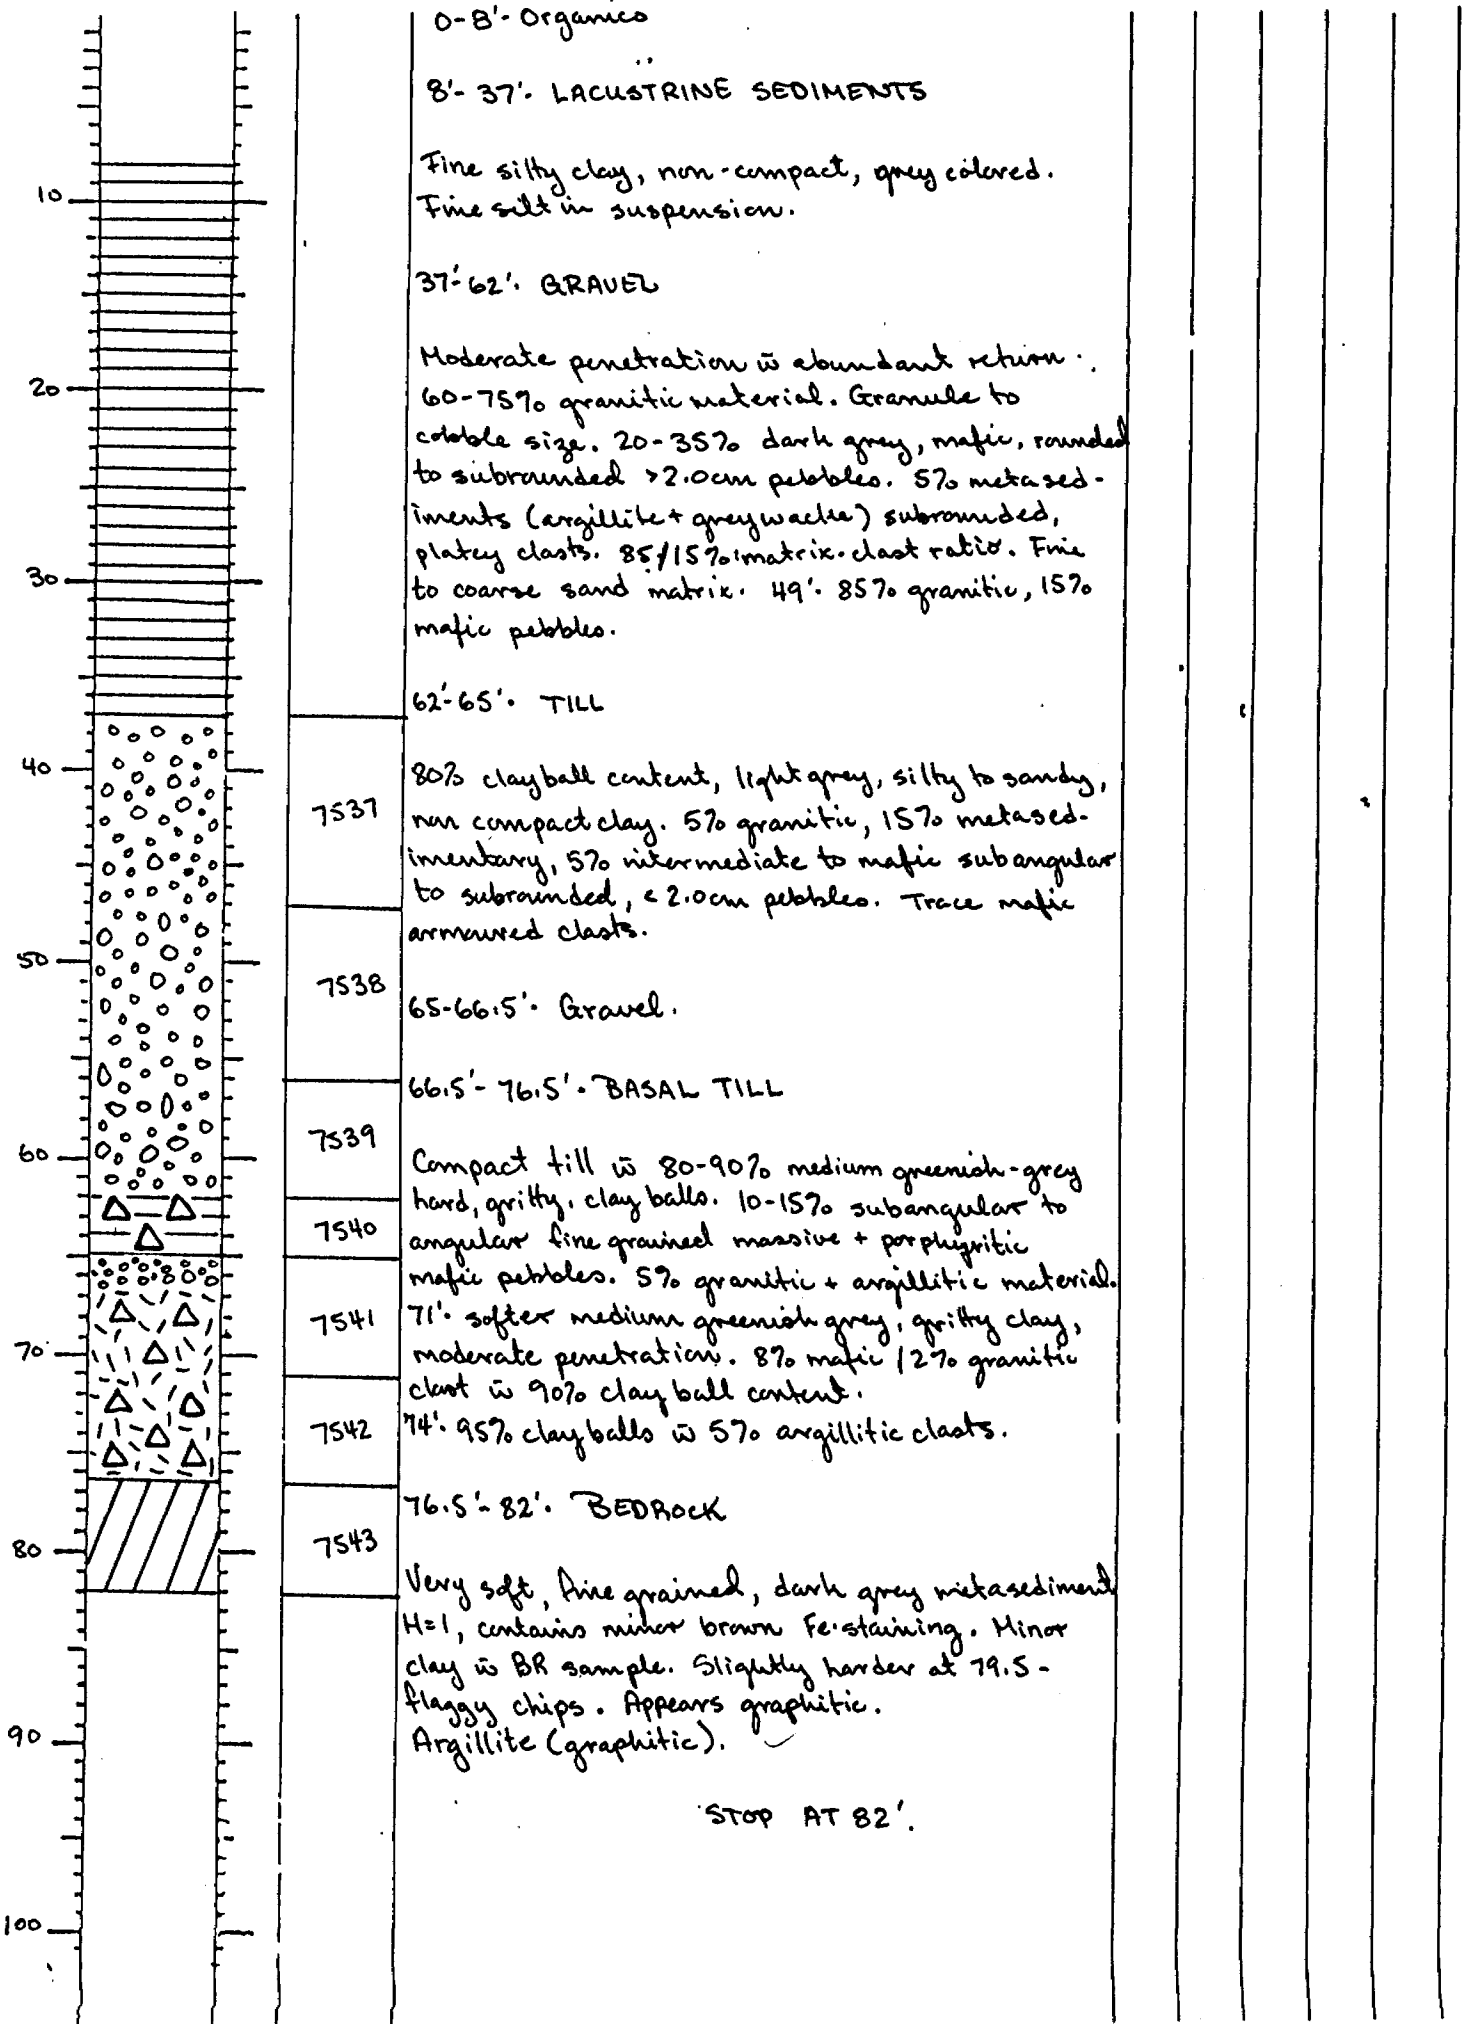 0-8'- Organics
8'- 37'. LACUSTRINE SEDIMENTS
Fine silty clay, non-compact, grey colored.
Fine silt in suspension.
37'-62'. GRAVEL
Moderate penetration w̄ abundant return.
60-75% granitic material. Granule to
cobble size. 20-35% dark grey, mafic, rounded
to subrounded >2.0cm pebbles. 5% metased-
iments (argillite + greywacke) subrounded,
platey clasts. 85/15% matrix-clast ratio. Fine
to coarse sand matrix. 49'. 85% granitic, 15%
mafic pebbles.
62'-65'. TILL
80% clayball content, light grey, silty to sandy,
non compact clay. 5% granitic, 15% metased-
imentary, 5% intermediate to mafic subangular
to subrounded, < 2.0cm pebbles. Trace mafic
armoured clasts.
65-66.5'. Gravel.
66.5'- 76.5'. BASAL TILL
Compact till w̄ 80-90% medium greenish-grey
hard, gritty, clay balls. 10-15% subangular to
angular fine grained massive + porphyritic
mafic pebbles. 5% granitic + argillitic material.
71'. softer medium greenish grey, gritty clay,
moderate penetration. 8% mafic / 2% granitic
clast w̄ 90% clay ball content.
74'. 95% clay balls w̄ 5% argillitic clasts.
76.5'- 82'. BEDROCK
Very soft, fine grained, dark grey metasediment
H=1, contains minor brown Fe-staining. Minor
clay w̄ BR sample. Slightly harder at 79.5-
flaggy chips. Appears graphitic.
Argillite (graphitic).
STOP AT 82'.
10
20
30
40
50
60
70
80
90
100
7537
7538
7539
7540
7541
7542
7543